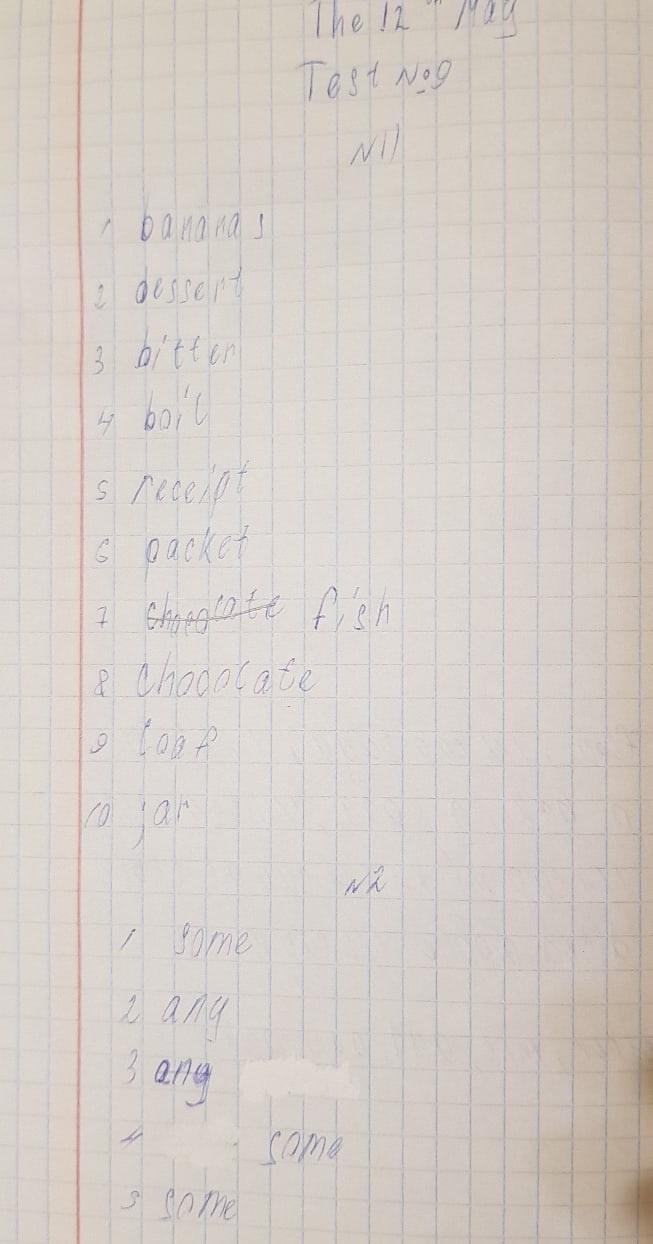 The 12th May
Test №9
N1)
1 bananas
2 dessert
3 bitter
4 boil
5 receipt
6 packet
7 chocolate fish
8 chocolate
9 loaf
10 jar
N2
1 some
2 any
3 any
4 some
5 some